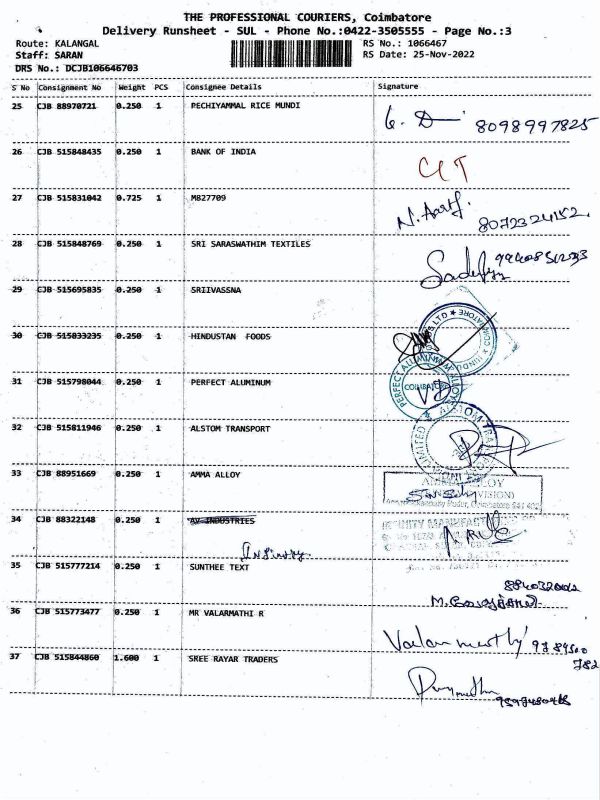 THE PROFESSIONAL COURIERS, Coimbatore
Delivery Runsheet - SUL - Phone No.:0422-3505555 - Page No.:3
Route: KALANGAL RS No.: 1066467
Staff: SARAN RS Date: 25-Nov-2022
DRS No.: DCJB106646703
S No Consignment No Weight PCS Consignee Details Signature
25 CJB 88970721 0.250 1 PECHIYAMMAL RICE MUNDI 8098997825
26 CJB 515848435 0.250 1 BANK OF INDIA
27 CJB 515831042 0.725 1 MB27709 8072324152
28 CJB 515848769 0.250 1 SRI SARASWATHIM TEXTILES
29 CJB 515695835 0.250 1 SRIIVASSNA
30 CJB 515833235 0.250 1 HINDUSTAN FOODS
31 CJB 515798044 0.250 1 PERFECT ALUMINUM COIMBATORE
32 CJB 515811946 0.250 1 ALSTOM TRANSPORT
33 CJB 88951669 0.250 1 AMMA ALLOY
34 CJB 88322148 0.250 1 AV INDUSTRIES
35 CJB 515777214 0.250 1 SUNTHEE TEXT
36 CJB 515773477 0.250 1 MR VALARMATHI R
37 CJB 515844860 1.600 1 SREE RAYAR TRADERS